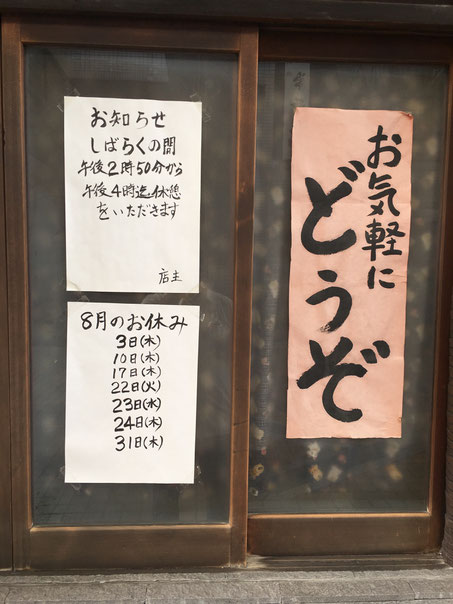 お知らせ
しばらくの間
午後2時50分から
午後4時迄休憩
をいただきます
店主
8月のお休み
3日(木)
10日(木)
17日(木)
22日(火)
23日(水)
24日(木)
31日(木)
お気軽に
どうぞ